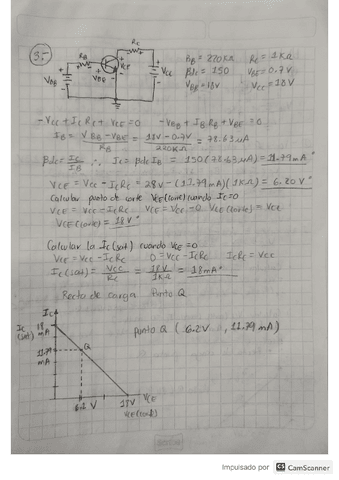 35-
RB
RC
VCC
VBB
VCE
VBE
RB = 220KΩ RC = 1KΩ
βdc = 150 VBE = 0.7V
VBB = 18V VCC = 18V
-VCC + IC RC + VCE = 0 -VBB + IB RB + VBE = 0
IB = VBB - VBE / RB = 18V - 0.7V / 220KΩ = 78.63 μA
βdc = IC / IB ∴ IC = βdc IB = 150 (78.63 μA) = 11.79 mA
VCE = VCC - IC RC = 28V - (11.79 mA)(1KΩ) = 6.20 V
Calcular punto de corte VCE(corte) cuando IC = 0
VCE = VCC - IC RC VCE = VCC - 0 VCE(corte) = VCC
VCE(corte) = 18V
Calcular la IC(sat) cuando VCE = 0
VCE = VCC - IC RC 0 = VCC - IC RC IC RC = VCC
IC(sat) = VCC / RC = 18V / 1KΩ = 18mA
Recta de carga Punto Q
IC
IC (sat) 18 mA
punto Q ( 6.2V , 11.79 mA)
11.79 mA
Q
6.2 V 18V VCE
VCE(corte)
Impulsado por CS CamScanner